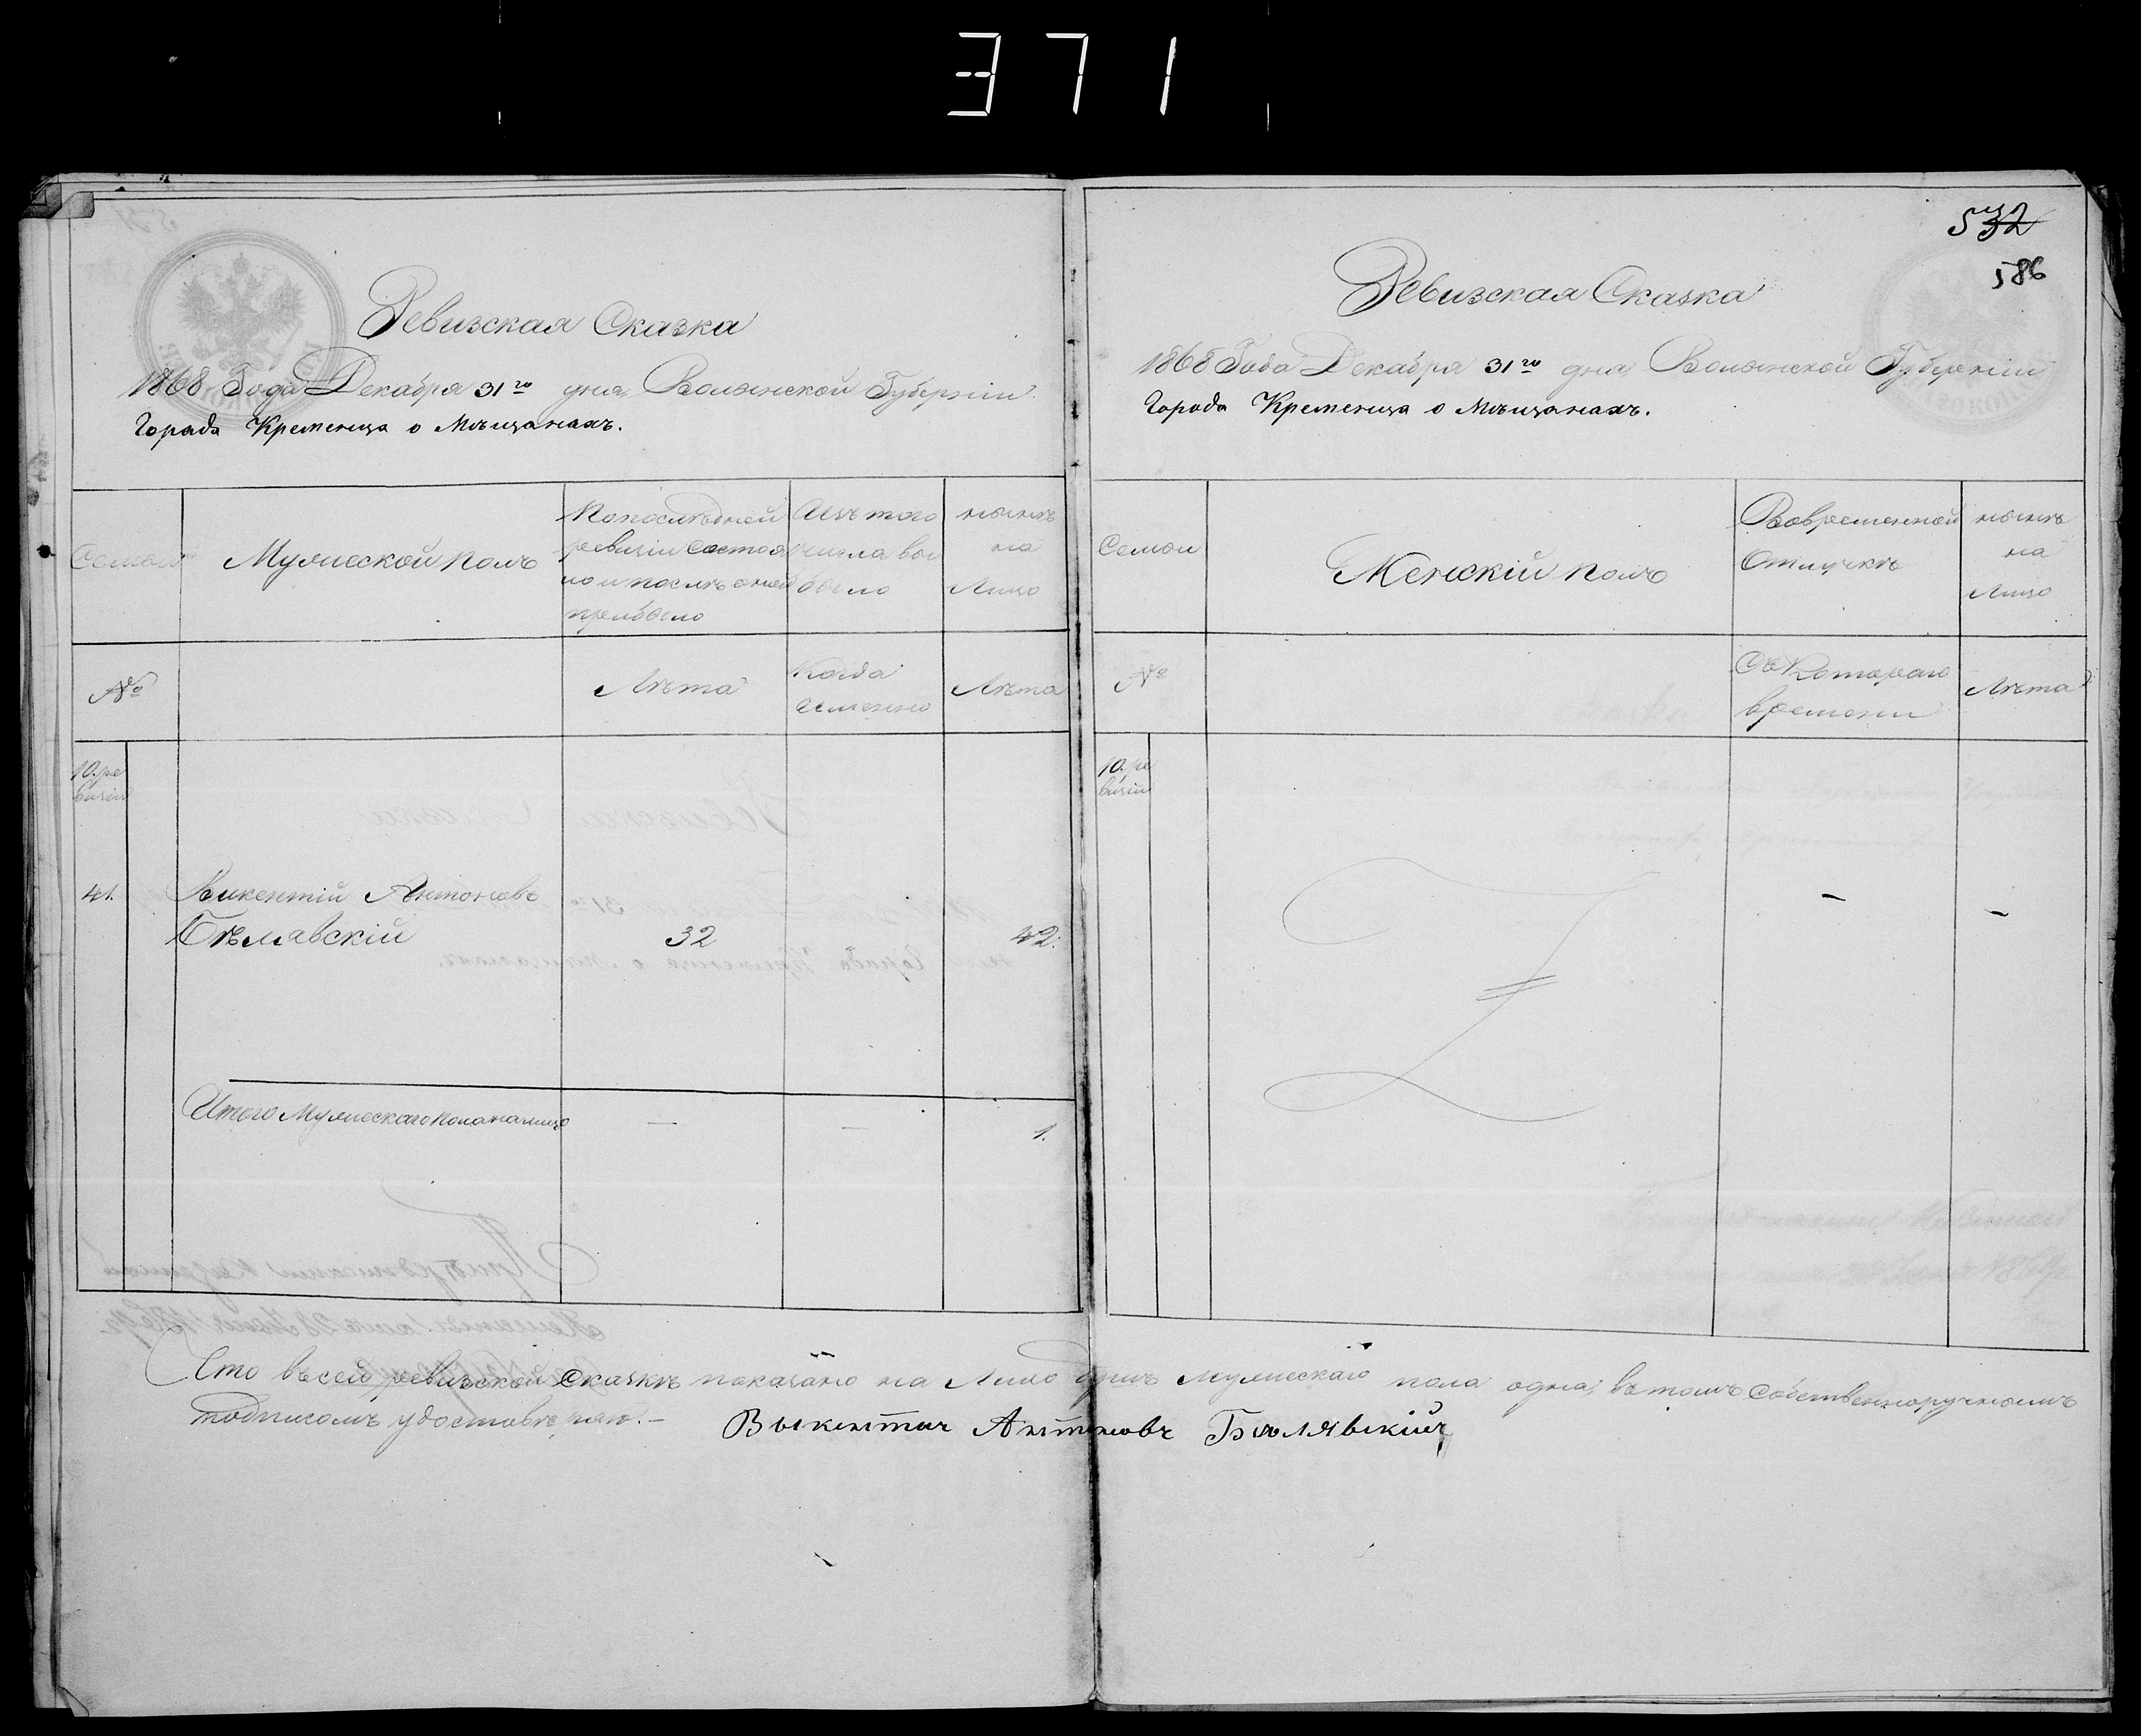 371
Ревизская Сказка
1868 Года Декабря 31го дня Волынской Губерніи
Города Кременца о Мѣщанахъ.
Семьи
Мужеской полъ
По последней
ревизіи состоя
ло и послѣ оной
прибыло
Изъ того
числа вы
было
нынѣ
на
Лицо
№
Лѣта
Когда
именно
Лѣта
10. ре
визіи
41.
Викентій Антоновъ
Бѣлавскій
32
42.
Итого Мужескаго пола на лицо
—
—
1.
532
586
Ревизская Сказка
1868 Года Декабря 31го дня Волынской Губерніи
Города Кременца о Мѣщанахъ.
Семьи
Женскій полъ
Вовременной
Отлучкѣ
нынѣ
на
Лицо
№
Съ Котораго
времени
Лѣта
10. ре
визіи
—
—
Что въ сей ревизской Сказкѣ показано на Лицо душъ Мужескаго пола одна, въ томъ собственноручнымъ
подписомъ удостовѣряю. —
Выкентич Антоновъ Бѣлявький